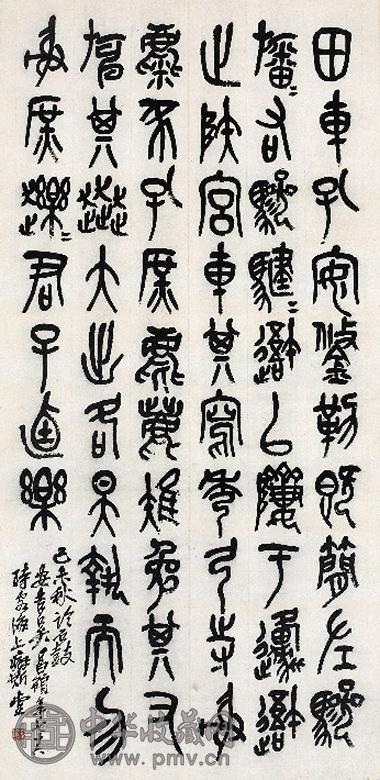 田車孔安鋚勒既簡左驂
旛=右驂騝=䢩以隮于邍䢩
止陝宮車其寫秀弓寺射
麋豕孔庶麀鹿雉兔其又
旃其奔大出各昊執而勿
射庶趯=君子逌樂
己未秋臨石鼓
安吉吳昌碩年七十六
時客海上癖斯堂
中华收藏网
www.pmv.cn